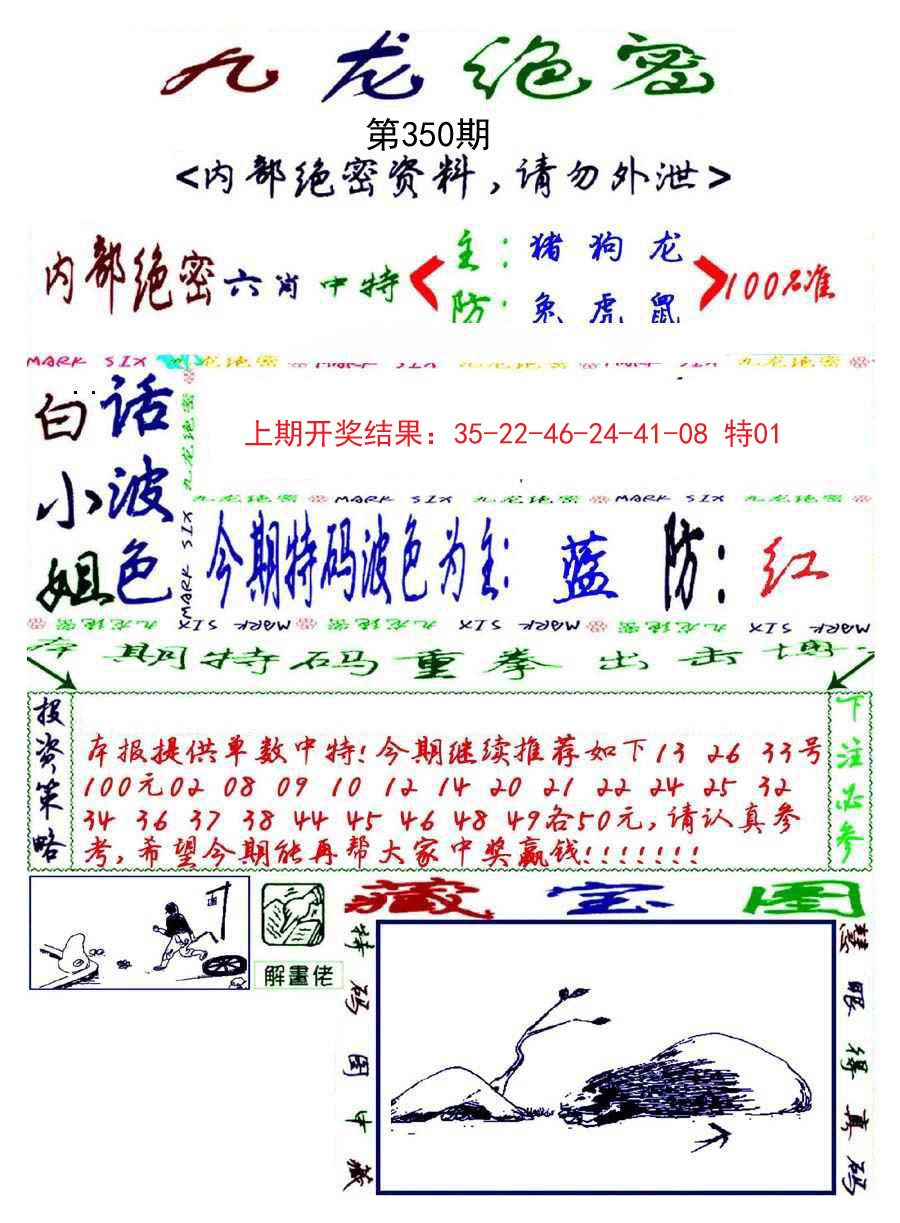 九龙绝密
第350期
<内部绝密资料,请勿外泄>
内部绝密六肖中特
主:猪狗龙
防:兔虎鼠
100%准
MARK SIX 九龙绝密 MARK SIX 九龙绝密 MARK SIX 九龙绝密
白话
小波
姐色
九龙绝密 MARK SIX
上期开奖结果：35-22-46-24-41-08 特01
九龙绝密 MARK SIX 九龙绝密 MARK SIX 九龙绝密
今期特码波色为主:蓝 防:红
九龙绝密 MARK SIX 九龙绝密 MARK SIX 九龙绝密 MARK SIX
本期特码重拳出击
投资策略
本报提供单数中特!今期继续推荐如下13 26 33号
100元02 08 09 10 12 14 20 21 22 24 25 32
34 36 37 38 44 45 46 48 49各50元,请认真参
考,希望今期能再帮大家中奖赢钱!!!!!!!
下注必参
解畫佬
藏宝图
特码图中藏
慧眼得真码